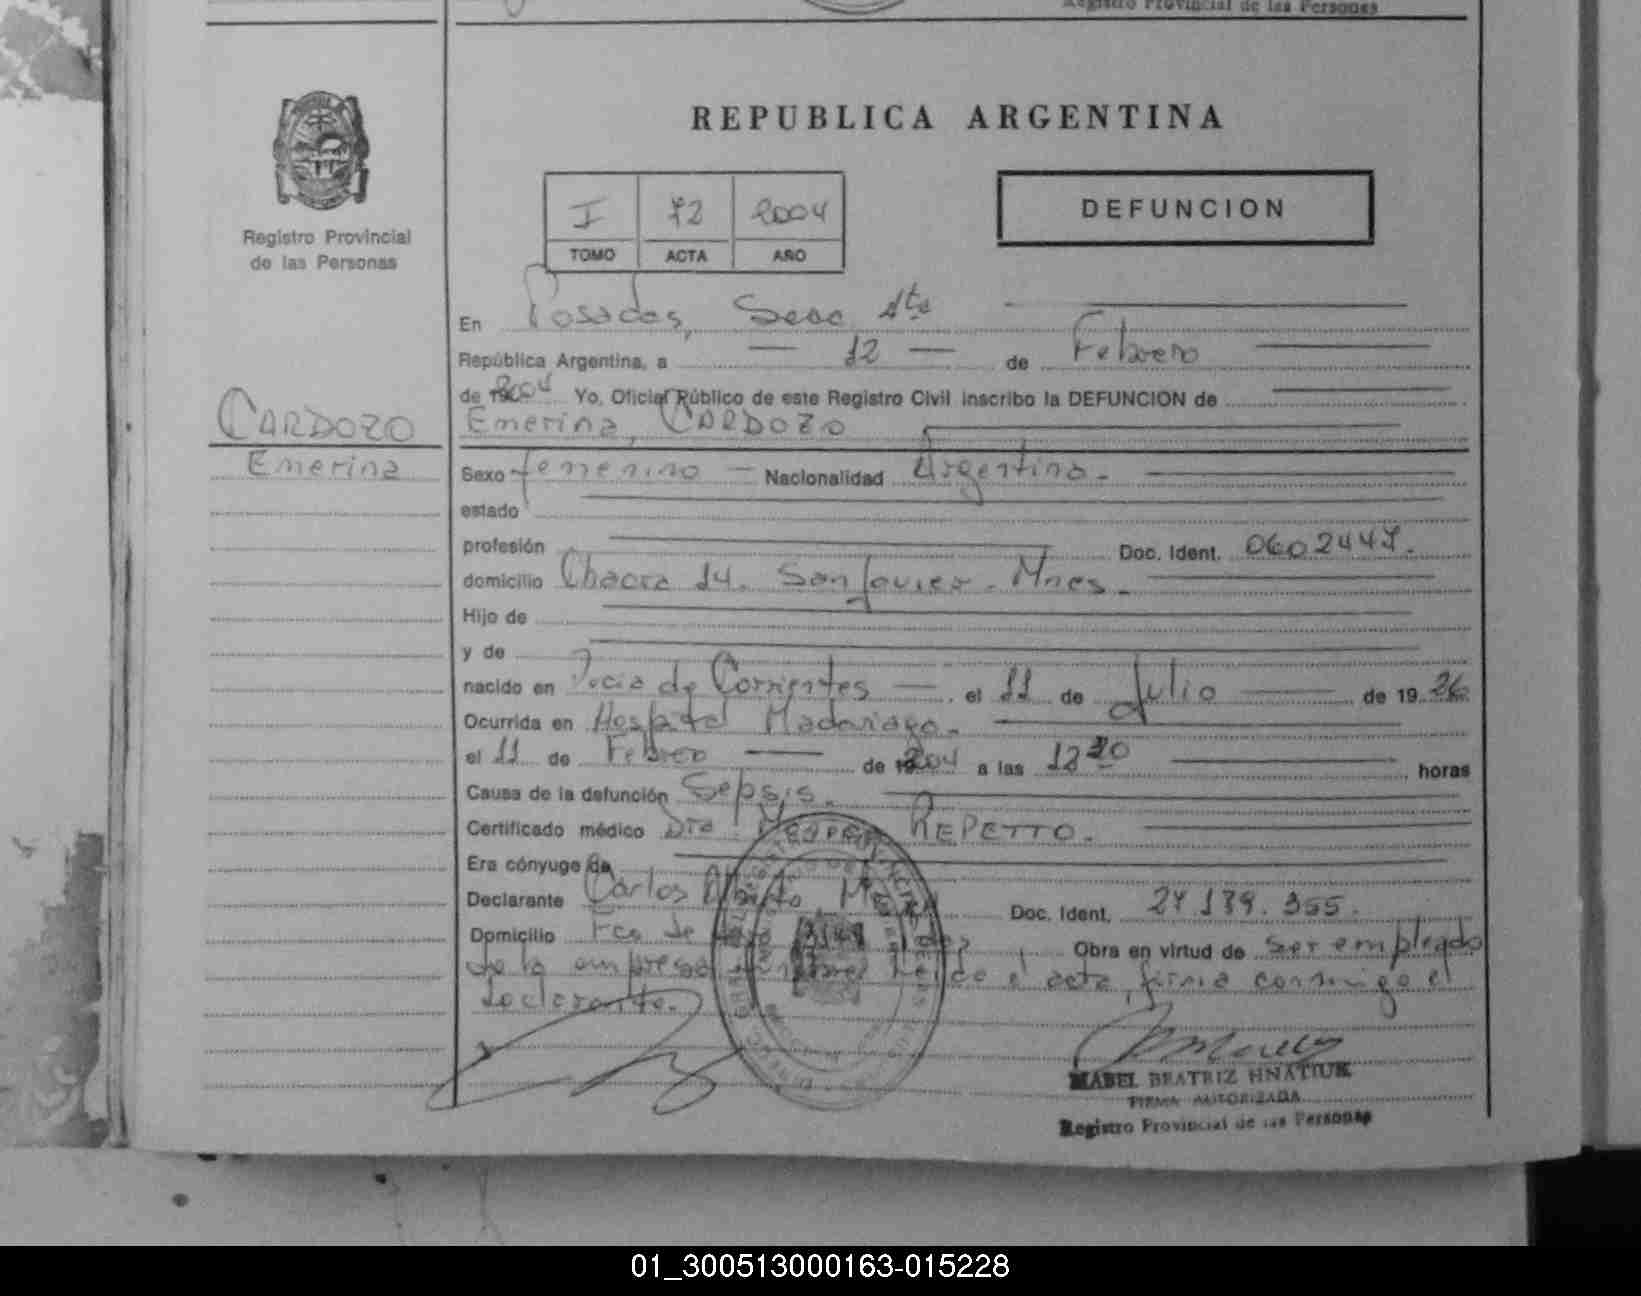 Registro Provincial de las Personas
REPUBLICA ARGENTINA
Registro Provincial
de las Personas
I 72 2004
TOMO ACTA AÑO
DEFUNCION
En Posadas, Secc 4ta
República Argentina, a 12 de Febrero
de 2004 Yo, Oficial Público de este Registro Civil inscribo la DEFUNCION de
CARDOZO
Emerina
Emerina, CARDOZO
Sexo femenino Nacionalidad Argentina.
estado
profesión Doc. Ident. 0602447.
domicilio Chacra 14. San Javier. Mnes.
Hijo de
y de
nacido en Pcia de Corrientes, el 11 de Julio de 1926
Ocurrida en Hospital Madariaga.
el 11 de Febrero de 2004 a las horas
Causa de la defunción Sepsis.
Certificado médico Dra. REPETTO.
Era cónyuge de
Declarante Carlos Alberto Doc. Ident.
Domicilio Fco de Obra en virtud de ser empleado
de la empresa acta, firma conmigo el
declarante.
MABEL BEATRIZ HNATIUK
FIRMA AUTORIZADA
Registro Provincial de las Personas
01_300513000163-015228